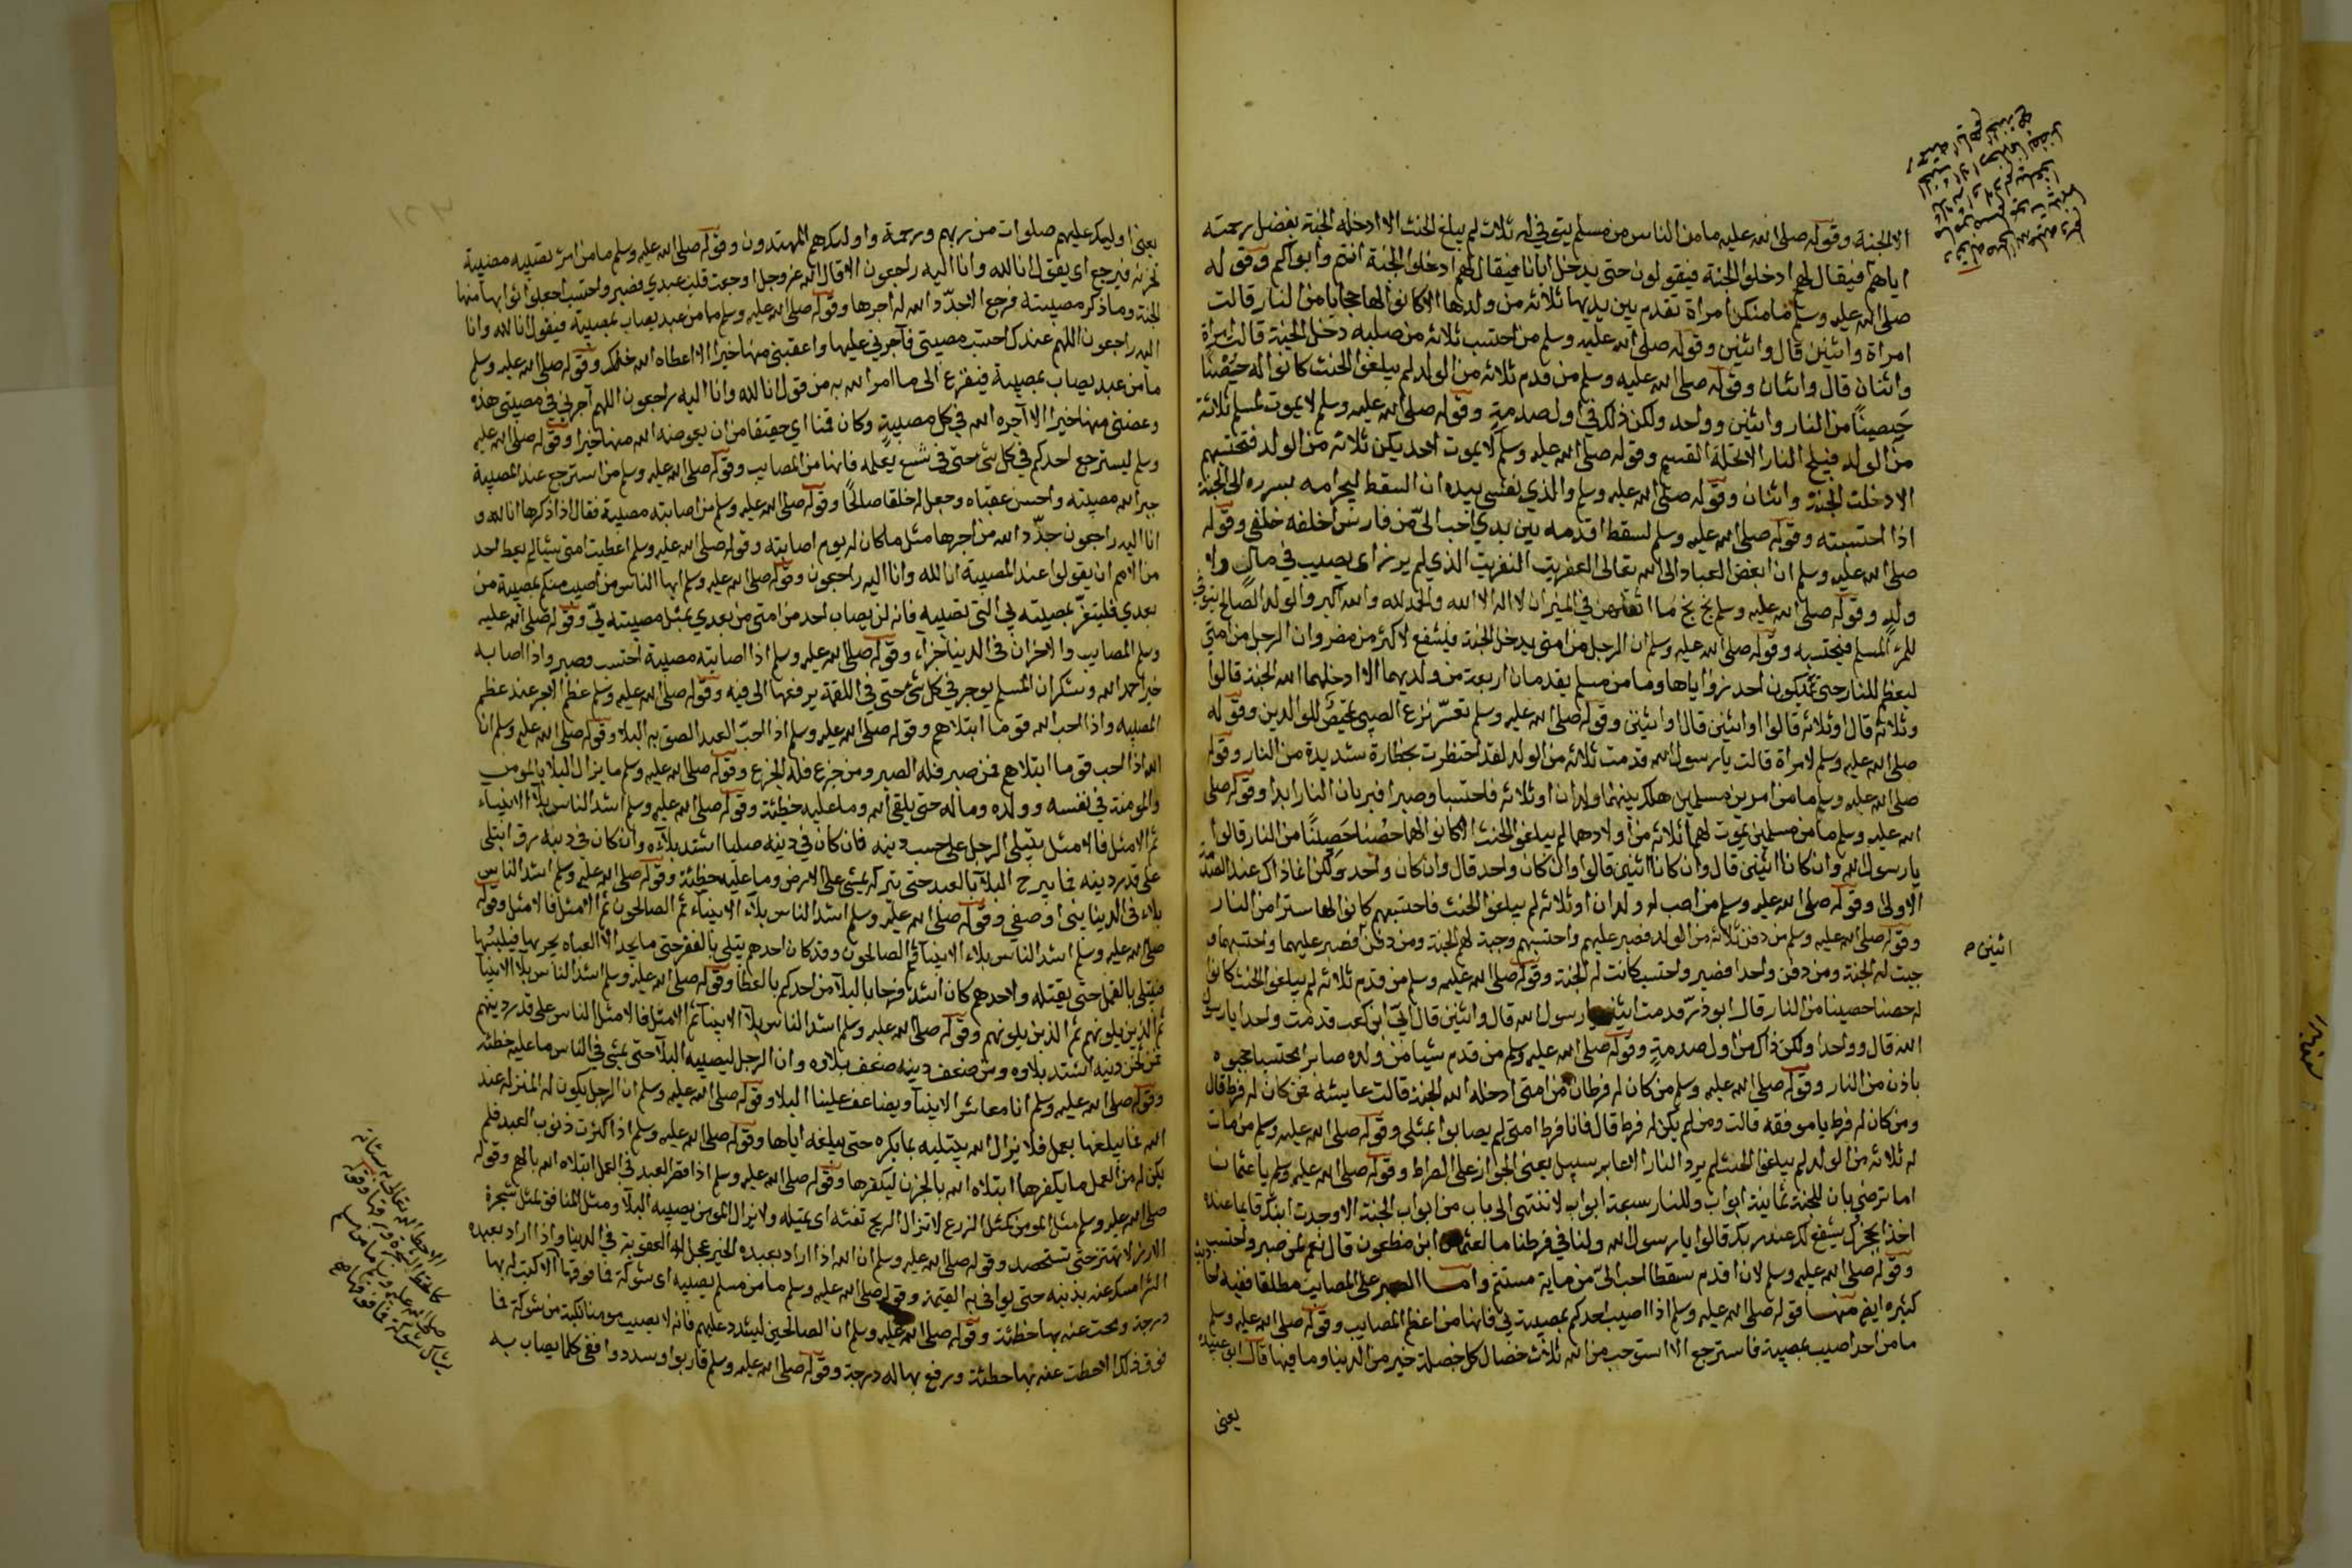 الا الجنة وقوله صلى الله عليه ما من الناس من مسلم يتوفى له ثلاث لم يبلغوا الحنث الا ادخله الجنة بفضل رحمته
اياهم فيقال لهم ادخلوا الجنة فيقولون حتى يدخل اباؤنا فيقال لهم ادخلوا الجنة انتم وابواكم وقوله
صلى الله عليه وسلم ما منكن امراة تقدم بين يديها ثلاثة من ولدها الا كانوا لها حجابا من النار قالت
امراة واثنين قال واثنين وقوله صلى الله عليه وسلم من احتسب ثلاثة من صلبه دخل الجنة قالت امراة
واثنان قال واثنان وقوله صلى الله عليه وسلم من قدم ثلاثة من الولد لم يبلغوا الحنث كانوا له حصنا
حصينا من النار واثنين وواحد ولكن ذلك في اول صدمة وقوله صلى الله عليه وسلم لا يموت لمسلم ثلاثة
من الولد فيلج النار الا تحلة القسم وقوله صلى الله عليه وسلم لا يموت لاحديكن ثلاثة من الولد فتحتسبهم
الا دخلت الجنة واثنان وقوله صلى الله عليه وسلم والذي نفسي بيده ان السقط ليجر امه بسرره الى الجنة
اذا احتسبته وقوله صلى الله عليه وسلم لسقط اقدمه بين يدي احب الي من فارس اخلفه خلفي وقوله
صلى الله عليه وسلم ان ابغض العباد الى الله تعالى العفريت النفريت الذي لم يرزا اي يصب في مال ولا
ولد وقوله صلى الله عليه وسلم بخ بخ ما اثقلهن في الميزان لا اله الا الله والحمد لله والله اكبر والولد الصالح يتوفى
للمرء المسلم فيحتسبه وقوله صلى الله عليه وسلم ان الرجل من امتي يدخل الجنة فيشفع لاكثر من مضر وان الرجل من امتي
ليعظم للنار حتى يكون احد زواياها وما من مسلم يقدمان اربعة من ولديهما الا ادخلهما الله الجنة قالوا
وثلاثة قال وثلاثة قالوا او اثنين قال او اثنين وقوله صلى الله عليه وسلم تعسر نزع الصبي تمحيص للوالدين وقوله
صلى الله عليه وسلم لامراة قالت يا رسول الله قدمت ثلاثة من الولد لقد احتظرت بحظارة شديدة من النار وقوله
صلى الله عليه وسلم ما من امرين مسلمين هلك بينهما ولدان او ثلاثة فاحتسبا وصبرا فيريان النار ابدا وقوله صلى
الله عليه وسلم ما من مسلمين يموت لهما ثلاثة من اولادهما لم يبلغوا الحنث الا كانوا لهما حصنا حصينا من النار قالوا
يا رسول الله وان كانا اثنين قال وان كانا اثنين قالوا وان كان واحد قال وان كان واحد ولكن انما ذاك عند الصدمة
الاولى وقوله صلى الله عليه وسلم من اصيب له ولدان او ثلاثة لم يبلغوا الحنث فاحتسبهم كانوا لها سترا من النار
وقوله صلى الله عليه وسلم من دفن ثلاثة من الولد فصبر عليهم واحتسبهم وجبت له الجنة ومن دفن فصبر عليهما واحتسبهما و
اثنين صح
جبت له الجنة ومن دفن واحدا فصبر واحتسب كانت له الجنة وقوله صلى الله عليه وسلم من قدم ثلاثة لم يبلغوا الحنث كانوا
له حصنا حصينا من النار قال ابو ذر قدمت اثنين يا رسول الله قال واثنين قال ابي ابن كعب قدمت واحدا يا رسول
الله قال وواحدا ولكن ذاك من اول صدمة وقوله صلى الله عليه وسلم من قدم شيا من ولده صابرا محتسبا حجبوه
باذن من النار وقوله صلى الله عليه وسلم من كان له فرطان من امتي ادخله الله الجنة قالت عايشة فمن كان له فرط قال
ومن كان له فرط يا موفقة قالت ومن لم يكن له فرط قال فانا فرط امتي لم يصابوا بمثلي وقوله صلى الله عليه وسلم من مات
له ثلاثة من الولد لم يبلغوا الحنث لم يرد النار الا عابر سبيل يعني الجواز على الصراط وقوله صلى الله عليه وسلم يا عثمان
اما ترضى بان للجنة ثمانية ابواب وللنار سبعة ابواب لا تنتهى الى باب من ابواب الجنة الا وجدت ابنك قايما عنده
اخذا بحجزتك يشفع لك عند ربك قالوا يا رسول الله ولنا في فرطنا ما لعثمان ابن مظعون قال نعم لمن صبر واحتسب
وقوله صلى الله عليه وسلم لان اقدم سقطا احب الي من ماية مستلئم واما الصبر على المصايب مطلقا ففيه احاديث
كثيرة ايضا منها قوله صلى الله عليه وسلم اذا اصيب احدكم بمصيبة بي فانها من اعظم المصايب وقوله صلى الله عليه وسلم
ما من احد اصيب بمصيبة فاسترجع الا استوجب من الله ثلاث خصال كل خصلة خير من الدنيا وما فيها قال ابو عبيدة
يعني
يعني اوليك عليهم صلوات من ربهم ورحمة واوليك هم المهتدون وقوله صلى الله عليه وسلم ما من امرئ تصيبه مصيبة
تحزنه فيرجع اي يقول انا لله وانا اليه راجعون الا قال الله عز وجل اوجعت قلب عبدي فصبر واحتسب اجعلوا ثوابها منها
الجنة وما ذكر مصيبته فرجع الا جدد الله له اجرها وقوله صلى الله عليه وسلم ما من عبد يصاب بمصيبة فيقول انا لله وانا
اليه راجعون اللهم عندك احتسب مصيبتي فآجرني عليها واعقبني منها خيرا الا اعطاه الله ذلك وقوله صلى الله عليه وسلم
ما من عبد يصاب بمصيبة فيفزع الى ما امر الله به من قول انا لله وانا اليه راجعون اللهم آجرني في مصيبتي هذه
وعضني منها خيرا الا آجره الله في كل مصيبة وكان قمنا اي حقيقا من ان يعوضه الله منها خيرا وقوله صلى الله عليه
وسلم ليسترجع احدكم في كل شئ حتى في شسع نعله فانها من المصايب وقوله صلى الله عليه وسلم من استرجع عند المصيبة
جبر الله مصيبته واحسن عقباه وجعل له خلفا صالحا وقوله صلى الله عليه وسلم من اصابته مصيبة فقال اذا ذكرها انا لله و
انا اليه راجعون جدد الله من اجرها مثل ما كان له يوم اصابته وقوله صلى الله عليه وسلم اعطيت امتي شيئا لم يعط احد
من الامم ان يقولوا عند المصيبة انا لله وانا اليه راجعون وقوله صلى الله عليه وسلم ايها الناس من اصيب منكم بمصيبة من
بعدي فليتعز بمصيبته بي التي تصيبه فانه لن يصاب احد من امتي من بعدي بمثل مصيبته بي وقوله صلى الله عليه
وسلم المصايب والاحزان في الدنيا جزاء وقوله صلى الله عليه وسلم اذا اصابته مصيبة احتسب وصبر واذا اصابه
خير حمد الله وشكر ان المسلم يوجر في كل شئ حتى في اللقمة يرفعها الى فيه وقوله صلى الله عليه وسلم عظم الاجر عند عظم
المصيبة واذا احب الله قوما ابتلاهم وقوله صلى الله عليه وسلم اذا احب العبد الصق به البلا وقوله صلى الله عليه وسلم ان
الله اذا احب قوما ابتلاهم فمن صبر فله الصبر ومن جزع فله الجزع وقوله صلى الله عليه وسلم ما يزال البلا بالمومن
والمومنة في نفسه وولده وماله حتى يلقى الله وما عليه خطيئة وقوله صلى الله عليه وسلم اشد الناس بلاء الانبياء
ثم الامثل فالامثل يبتلى الرجل على حسب دينه فان كان في دينه صلبا اشتد بلاؤه وان كان في دينه رقة ابتلى
على قدر دينه فما يبرح البلاء بالعبد حتى يتركه يمشي على الارض وما عليه خطيئة وقوله صلى الله عليه وسلم اشد الناس
بلاء في الدنيا نبي او صفي وقوله صلى الله عليه وسلم اشد الناس بلاء الانبياء ثم الصالحون ثم الامثل فالامثل وقوله
صلى الله عليه وسلم اشد الناس بلاء الانبياء ثم الصالحون وقد كان احدهم يبتلى بالفقر حتى ما يجد الا العباه يحوبها فيلبسها
فيبتلى بالقمل حتى يقتله ولاحدهم كان اشد فرحا بالبلاء من احدكم بالعطا وقوله صلى الله عليه وسلم اشد الناس بلاء الانبياء
ثم الذين يلونهم ثم الذين يلونهم وقوله صلى الله عليه وسلم اشد الناس بلاء الانبياء ثم الامثل فالامثل الناس على قدر دينهم
فمن ثخن دينه اشتد بلاوه ومن ضعف دينه ضعف بلاوه وان الرجل ليصيبه البلاء حتى يمشي في الناس ما عليه خطئة
وقوله صلى الله عليه وسلم انا معاشر الانبياء يضاعف علينا البلا وقوله صلى الله عليه وسلم ان الرجل يكون له المنزلة عند
الله فما يبلغها بعمل فلا يزال الله يبتليه بما يكره حتى يبلغه اياها وقوله صلى الله عليه وسلم اذا كثرت ذنوب العبد فلم
يكن له من العمل ما يكفرها ابتلاه الله بالحزن ليكفرها وقوله صلى الله عليه وسلم اذا قصر العبد في العمل ابتلاه الله بالهم وقوله
صلى الله عليه وسلم مثل المومن كمثل الزرع لا تزال الريح تفئه اي تميله ولا يزال المومن يصيبه البلاء ومثل المنافق كمثل شجرة
الارز لا تهتز حتى تستحصد وقوله صلى الله عليه وسلم ان الله اذا اراد بعبده الخير عجل له العقوبة في الدنيا واذا اراد بعبده
الشر امسك عنه بذنبه حتى يوافى به القيمة وقوله صلى الله عليه وسلم ما من مسلم يصيبه اي شوكة فما فوقها الا كتبت له بها
درجة ومحت عنه بها خطئة وقوله صلى الله عليه وسلم ان الصالحين ليشدد عليهم فانه لا يصيب مومنا نكبة من شوكة فما
فوق ذلك الا حطت عنه بها خطئة ورفع بها له درجة وقوله صلى الله عليه وسلم قاربوا وسددوا ففي كلما يصاب به